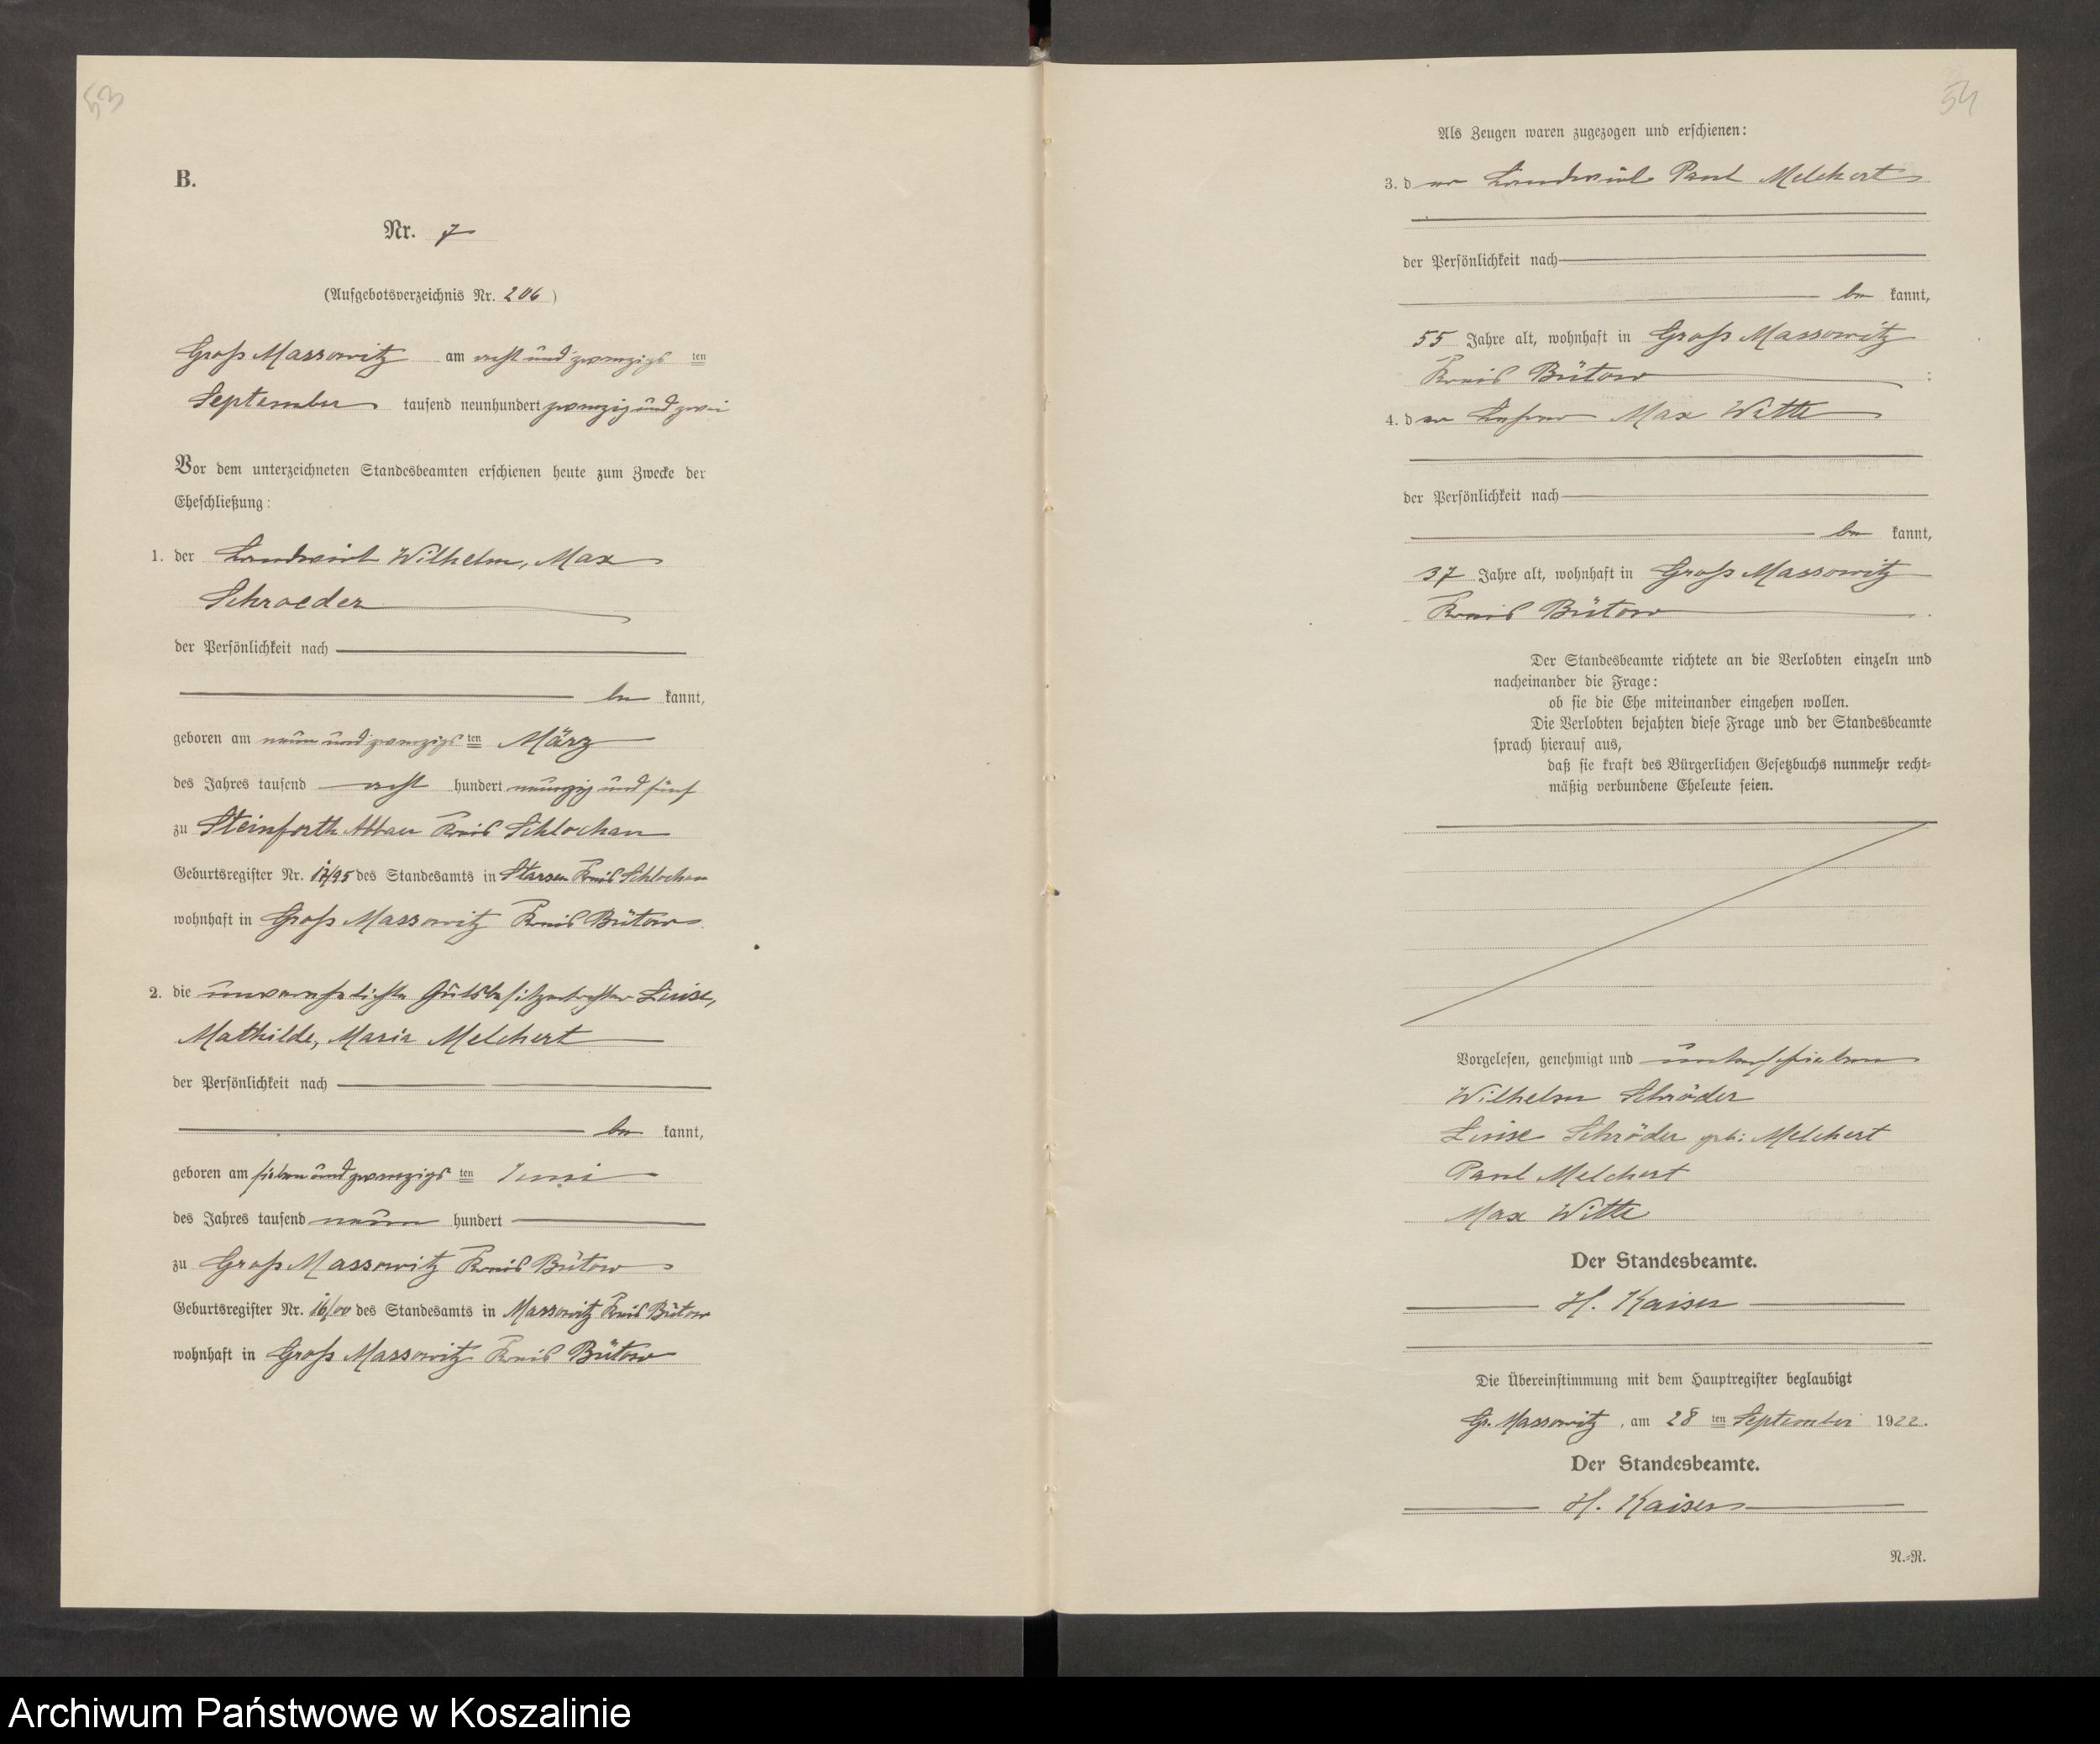 53
B.
Nr. 7
(Aufgebotsverzeichnis Nr. 206)
Groß Massowitz am acht und zwanzigs ten
September tausend neunhundert zwanzig und zwei
Vor dem unterzeichneten Standesbeamten erschienen heute zum Zwecke der
Eheschließung:
1. der Landwirt Wilhelm, Max
Schroeder
der Persönlichkeit nach
be kannt,
geboren am neun und zwanzigs ten März
des Jahres tausend acht hundert neunzig und fünf
zu Steinforth Abbau Kreis Schlochau
Geburtsregister Nr. 17/95 des Standesamts in Starsen Kreis Schlochau
wohnhaft in Groß Massowitz Kreis Bütow
2. die unverehelichte Gutsbesitzertochter Luise,
Mathilde, Maria Melchert
der Persönlichkeit nach
be kannt,
geboren am sieben und zwanzigs ten Juni
des Jahres tausend neun hundert
zu Groß Massowitz Kreis Bütow
Geburtsregister Nr. 16/00 des Standesamts in Massowitz Kreis Bütow
wohnhaft in Groß Massowitz Kreis Bütow
54
Als Zeugen waren zugezogen und erschienen:
3. d er Landwirt Paul Melchert
der Persönlichkeit nach
be kannt,
55 Jahre alt, wohnhaft in Groß Massowitz
Kreis Bütow
4. d er Lehrer Max Witte
der Persönlichkeit nach
be kannt,
37 Jahre alt, wohnhaft in Groß Massowitz
Kreis Bütow
Der Standesbeamte richtete an die Verlobten einzeln und
nacheinander die Frage:
ob sie die Ehe miteinander eingehen wollen.
Die Verlobten bejahten diese Frage und der Standesbeamte
sprach hierauf aus,
daß sie kraft des Bürgerlichen Gesetzbuchs nunmehr recht-
mäßig verbundene Eheleute seien.
Vorgelesen, genehmigt und unterschrieben
Wilhelm Schröder
Luise Schröder geb: Melchert
Paul Melchert
Max Witte
Der Standesbeamte.
H. Kaiser
Die Übereinstimmung mit dem Hauptregister beglaubigt
Gr. Massowitz, am 28 ten September 1922.
Der Standesbeamte.
H. Kaiser
N.-N.
Archiwum Państwowe w Koszalinie